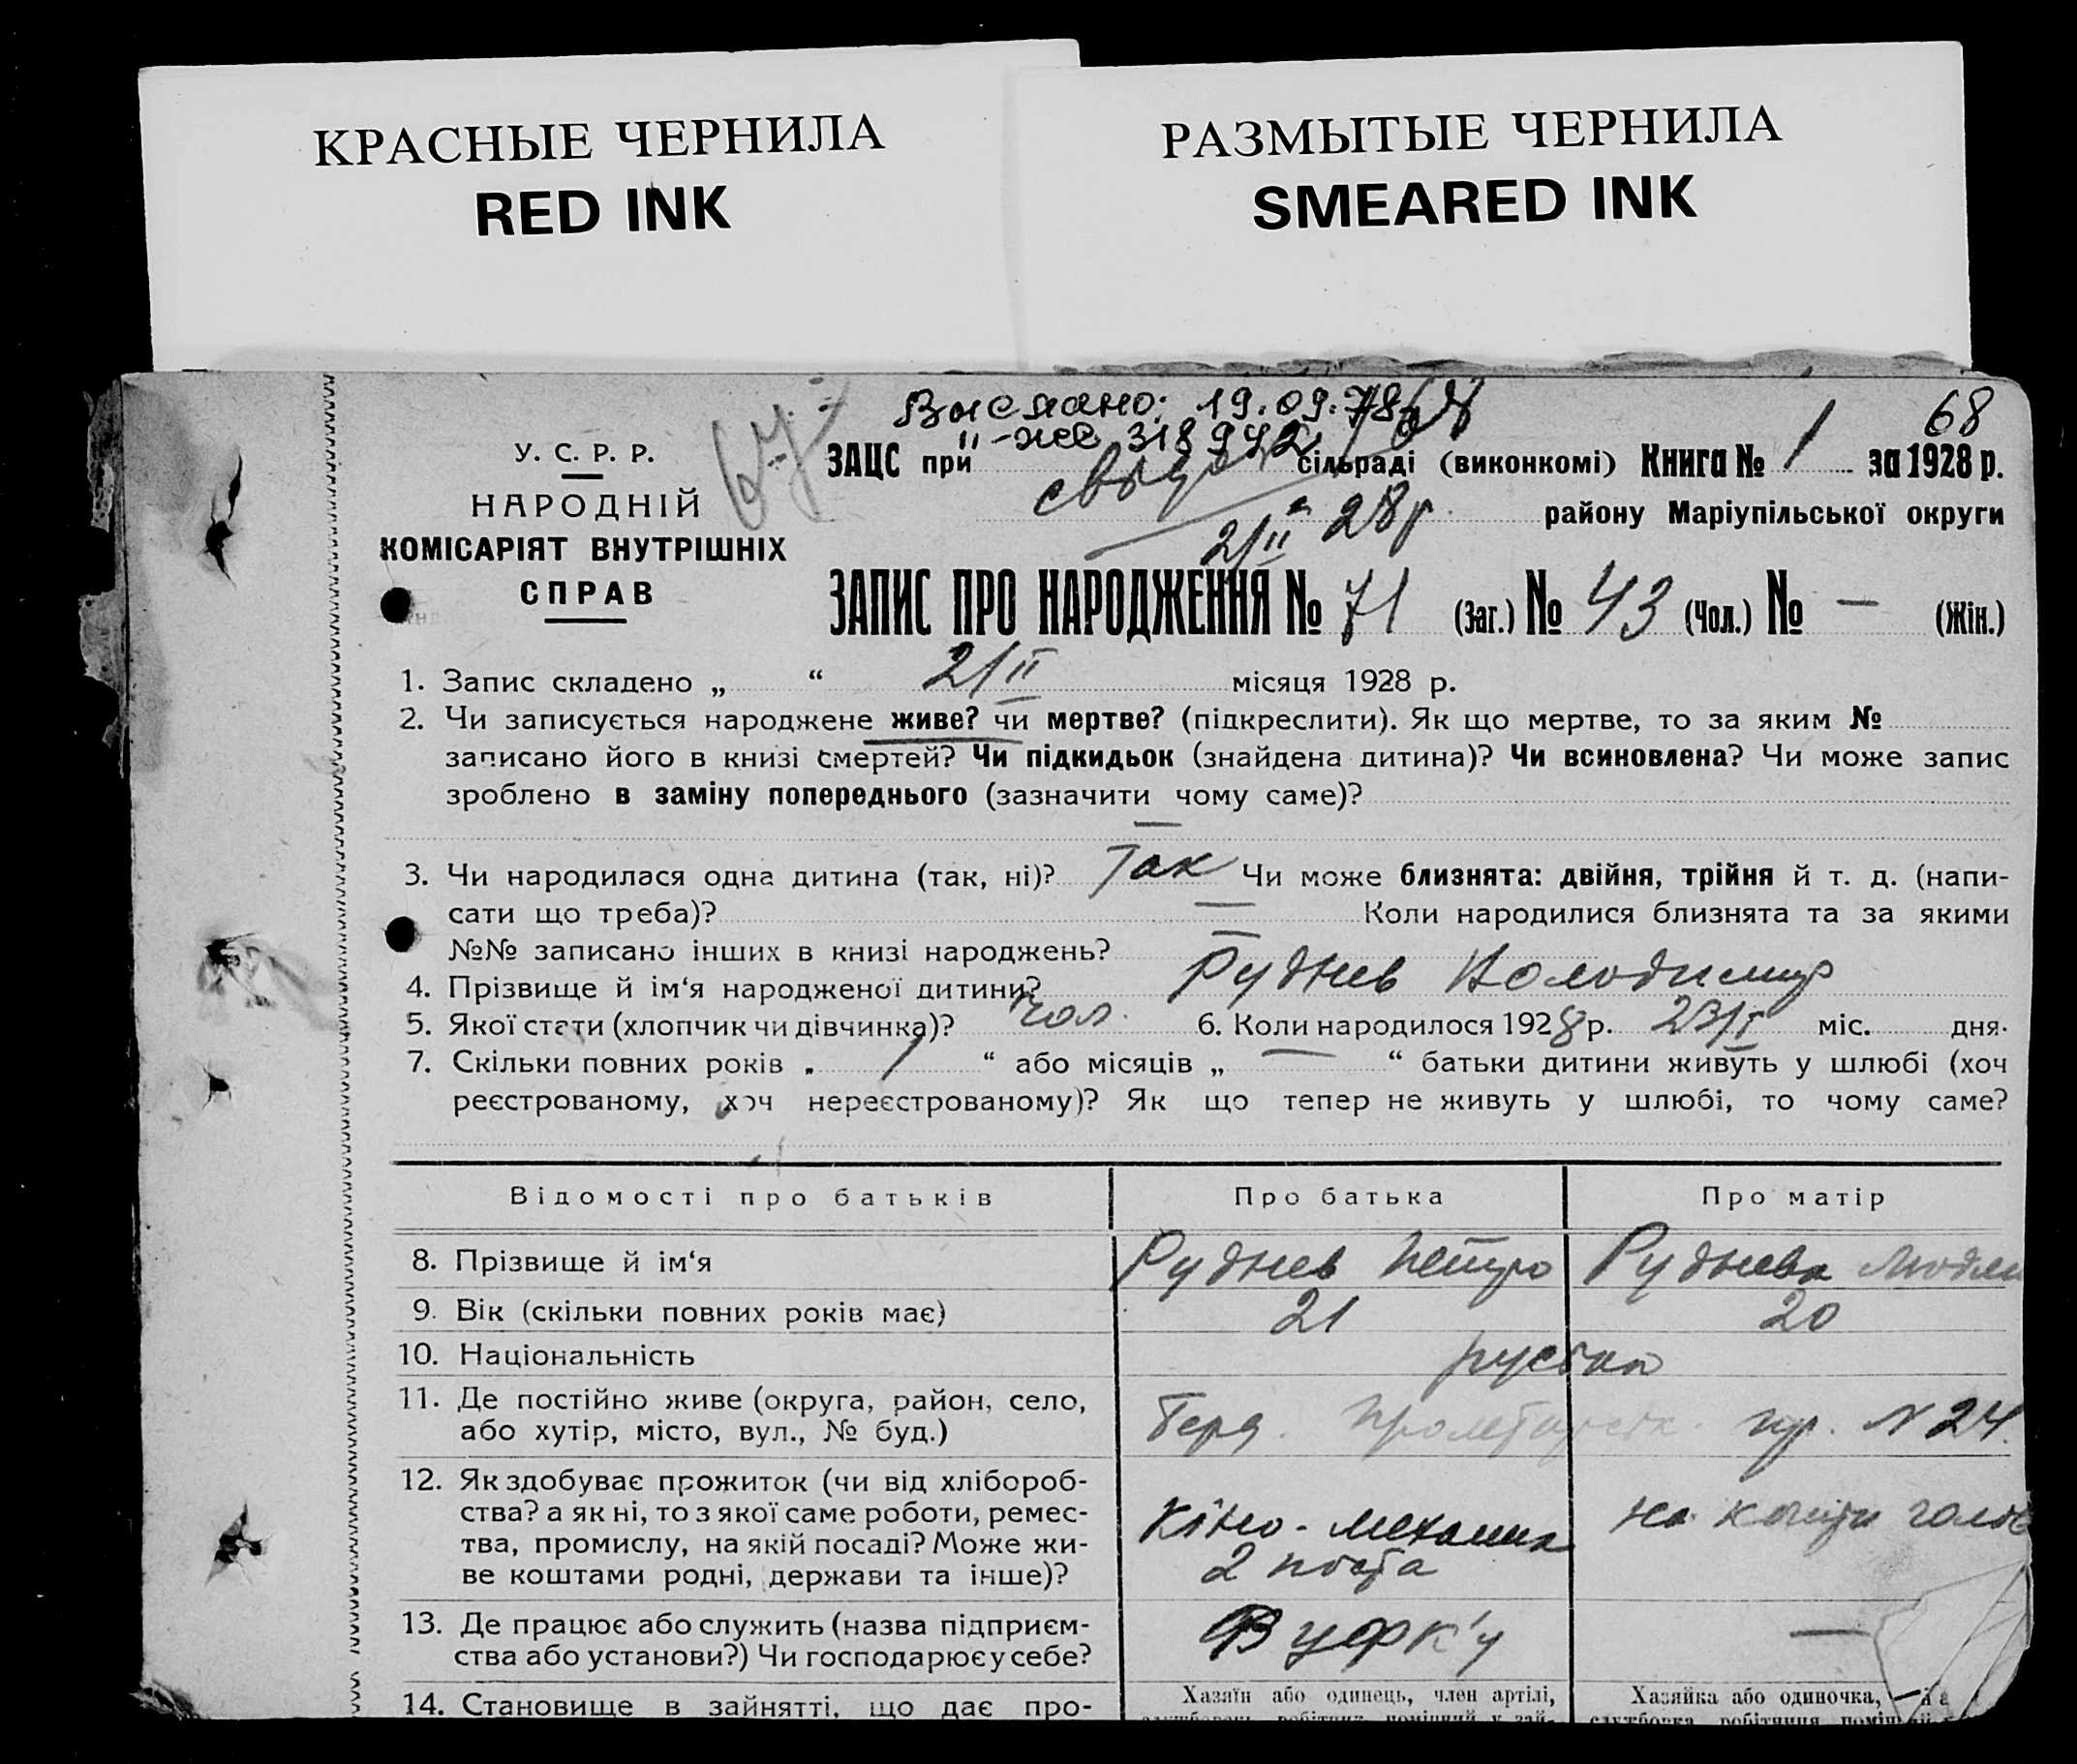 КРАСНЫЕ ЧЕРНИЛА
RED INK
РАЗМЫТЫЕ ЧЕРНИЛА
SMEARED INK
Выслано: 19.09.78
68
"-же 318942
У. С. Р. Р.
НАРОДНІЙ
КОМІСАРІЯТ ВНУТРІШНІХ
СПРАВ
ЗАЦС при сільраді (виконкомі) Книга № 1 за 1928 р.
21/II 28 р. району Маріупільської округи
ЗАПИС ПРО НАРОДЖЕННЯ № 71 (Заг.) № 43 (Чол.) № — (Жін.)
1. Запис складено „ “ 21/II місяця 1928 р.
2. Чи записується народжене живе? чи мертве? (підкреслити). Як що мертве, то за яким №
записано його в книзі смертей? Чи підкидьок (знайдена дитина)? Чи всиновлена? Чи може запис
зроблено в заміну попереднього (зазначити чому саме)?
—
3. Чи народилася одна дитина (так, ні)? Так Чи може близнята: двійня, трійня й т. д. (напи-
сати що треба)? — Коли народилися близнята та за якими
№№ записано інших в книзі народжень? —
4. Прізвище й ім‘я народженої дитини? Руднев Володимир
5. Якої стати (хлопчик чи дівчинка)? чол. 6. Коли народилося 1928 р. 23/I міс. дня.
7. Скільки повних років „ 1 “ або місяців „ — “ батьки дитини живуть у шлюбі (хоч
реєстрованому, хоч нереєстрованому)? Як що тепер не живуть у шлюбі, то чому саме?
Відомості про батьків Про батька Про матір
8. Прізвище й ім‘я Руднев Петро Руднева
9. Вік (скільки повних років має) 21 20
10. Національність
11. Де постійно живе (округа, район, село,
або хутір, місто, вул., № буд.) Берд. N 24.
12. Як здобуває прожиток (чи від хлібороб-
ства? а як ні, то з якої саме роботи, ремес-
тва, промислу, на якій посаді? Може жи-
ве коштами родні, держави та інше)?
Кіно-механик
2 поста
на кошти
13. Де працює або служить (назва підприєм-
ства або установи?) Чи господарює у себе?
Вуфк'у —
14. Становище в зайнятті, що дає про-
Хазяїн або одинець, член артілі,
Хазяйка або одиночка,